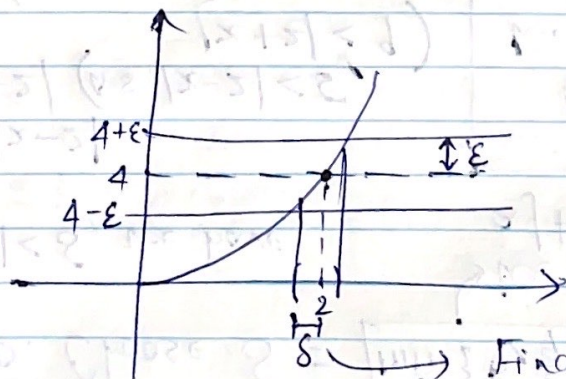 4+ε
ε
4
4-ε
2
δ → Find